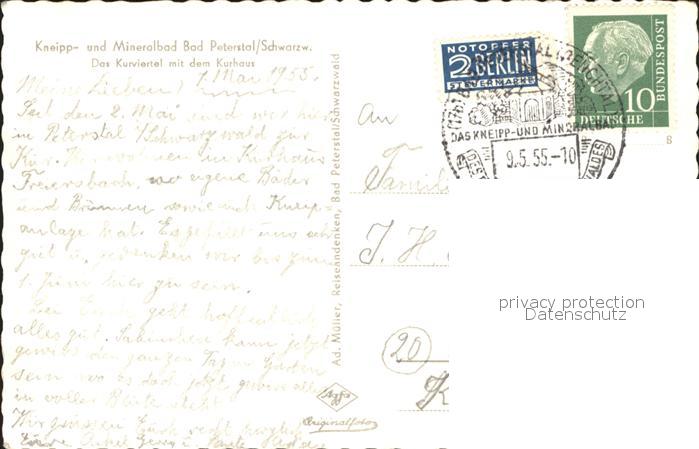 Kneipp- und Mineralbad Bad Peterstal/Schwarzw.
Das Kurviertel mit dem Kurhaus
Meine Lieben! 7. Mai 1955.
Seit dem 2. Mai sind wir hier
in Peterstal /Schwarzwald zur
Kur. Wir wohnen im Kurhaus
Freiersbach, wo eigene Bäder
und Brunnen sowie auch Kneip-
anlage hat. Es gefällt uns sehr
gut u. gedenken wir bis zum
1. Juni hier zu sein.
Bei Euch geht hoffentlich
alles gut. kann jetzt
gewiss den ganzen Tag im Garten
sein wo es doch jetzt gewiss alles
in voller Blüte steht
Wir grüssen Euch recht herzlich
Eure Onkel Georg u. Tante
Ad. Müller, Reiseandenken, Bad Peterstal/Schwarzwald
Agfa
Originalfoto
NOTOPFER
2 BERLIN
STEUERMARKE
DEUTSCHE
BUNDESPOST
10
DAS KNEIPP-UND MINERALBAD
9.5.55.-10
8
An
Famil
J. H.
(20)
K
privacy protection
Datenschutz